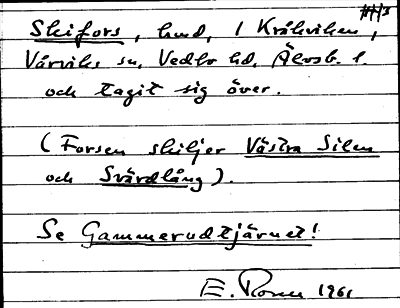 Skifors, hmd, i Kråkviken,
Vårviks sn, Vedbo hd, Älvsb. l.
och tagit sig över.
(Forsen skiljer Västra Silen
och Svärdlång).
Se Gammerudtjärnet!
E. 1961